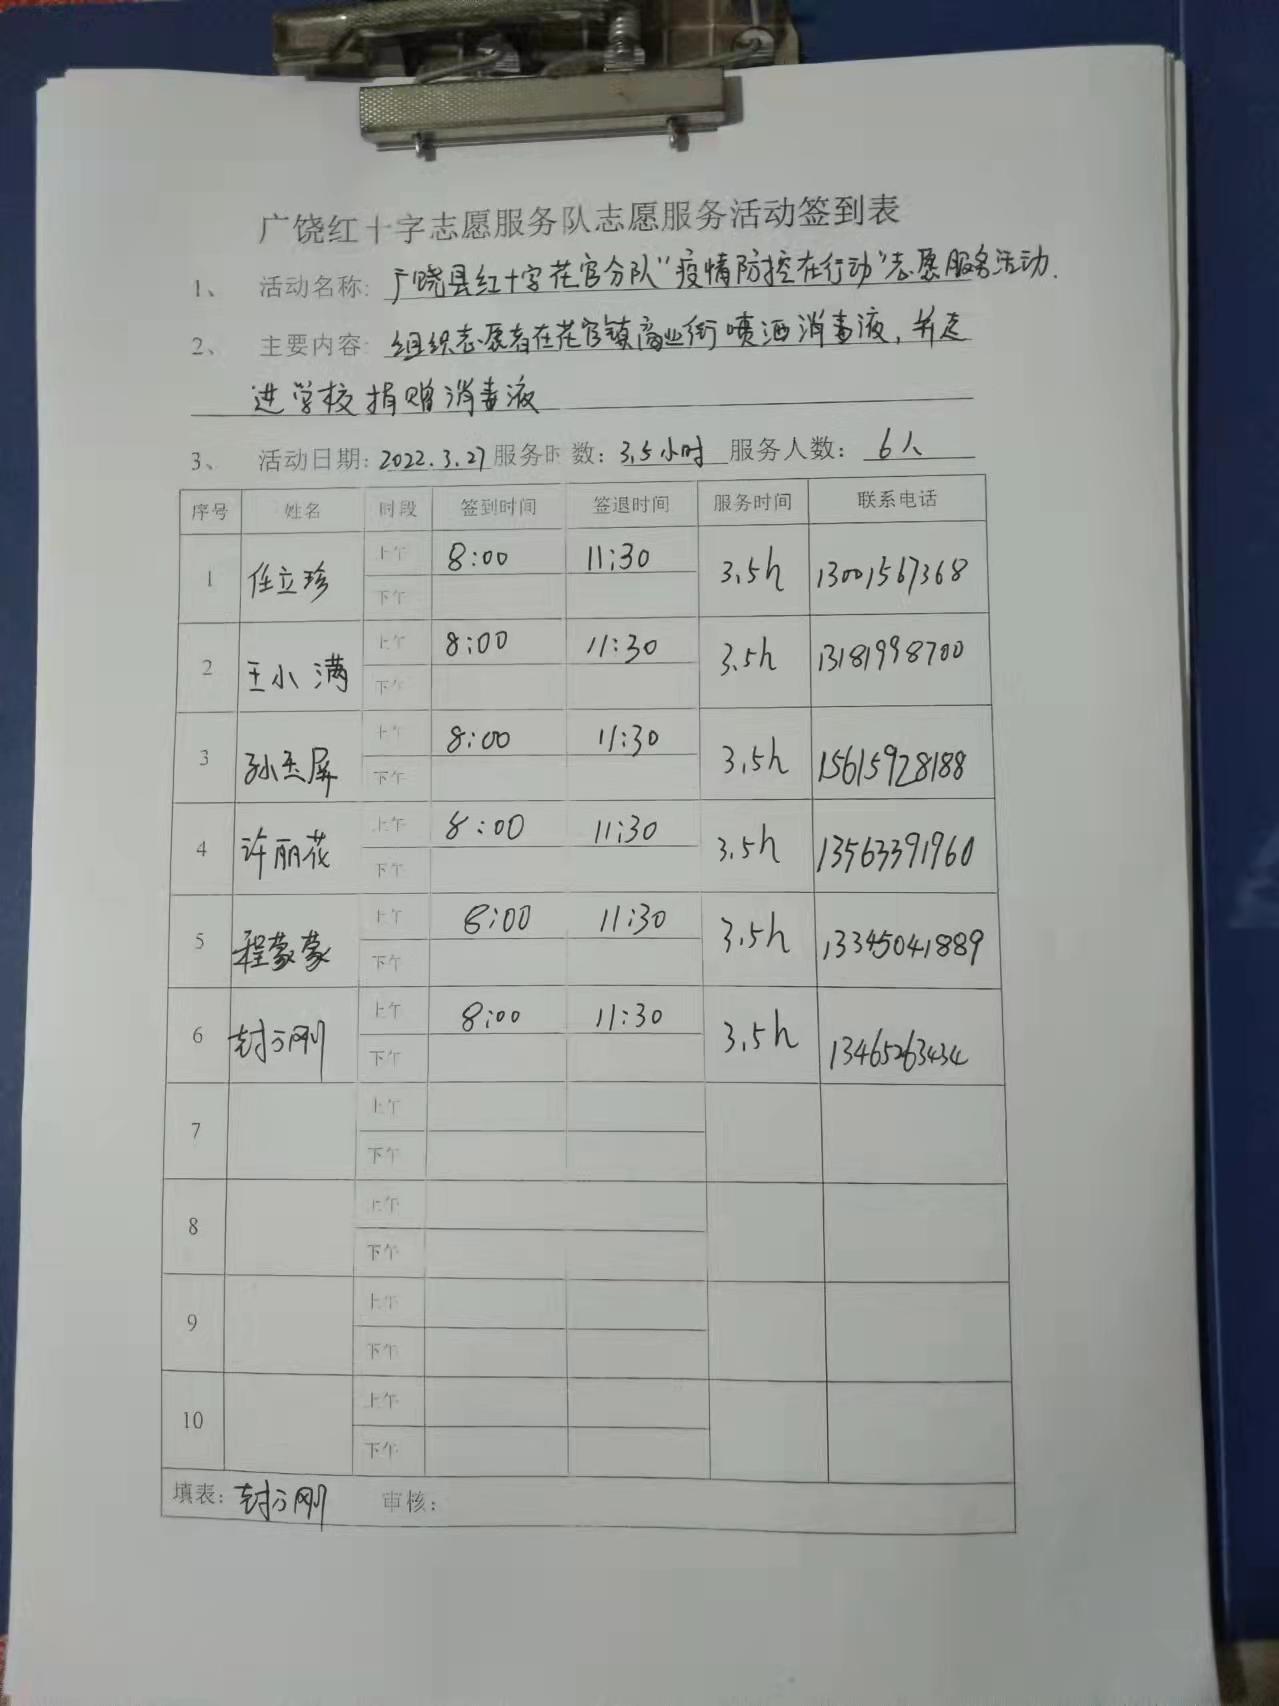 广饶红十字志愿服务队志愿服务活动签到表
1、 活动名称: 广饶县红十字花官分队“疫情防控在行动”志愿服务活动.
2、 主要内容: 组织志愿者在花官镇商业街喷洒消毒液，并走
进学校捐赠消毒液
3、 活动日期: 2022.3.27 服务时 数: 3.5小时 服务人数: 6人
序号 姓名 时段 签到时间 签退时间 服务时间 联系电话
1 任立珍 上午 8:00 11:30 3.5h 13001567368
下午
2 王小满 上午 8:00 11:30 3.5h 13181998700
下午
3 孙玉屏 上午 8:00 11:30 3.5h 15615928188
下午
4 许丽花 上午 8:00 11:30 3.5h 13563391960
下午
5 程蒙蒙 上午 8:00 11:30 3.5h 13345041889
下午
6 封 刚 上午 8:00 11:30 3.5h 13465263434
下午
7 上午
下午
8 上午
下午
9 上午
下午
10 上午
下午
填表: 封 刚 审核: